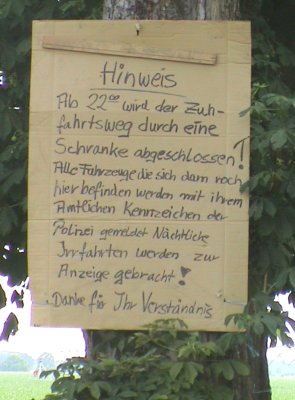 Hinweis
Ab 22⁰⁰ wird der Zuh-
fahrtsweg durch eine
Schranke abgeschlossen!
Alle Fahrzeuge die sich dann noch
hier befinden werden mit ihrem
Amtlichen Kennzeichen der
Polizei gemeldet Nächtliche
Irrfahrten werden zur
Anzeige gebracht!
Danke für Ihr Verständnis